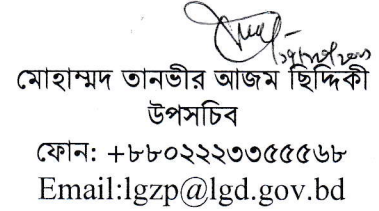 মোহাম্মদ তানভীর আজম ছিদ্দিকী
উপসচিব
ফোন: +৮৮০২২২৩৩৫৫৫৬৮
Email:lgzp@lgd.gov.bd